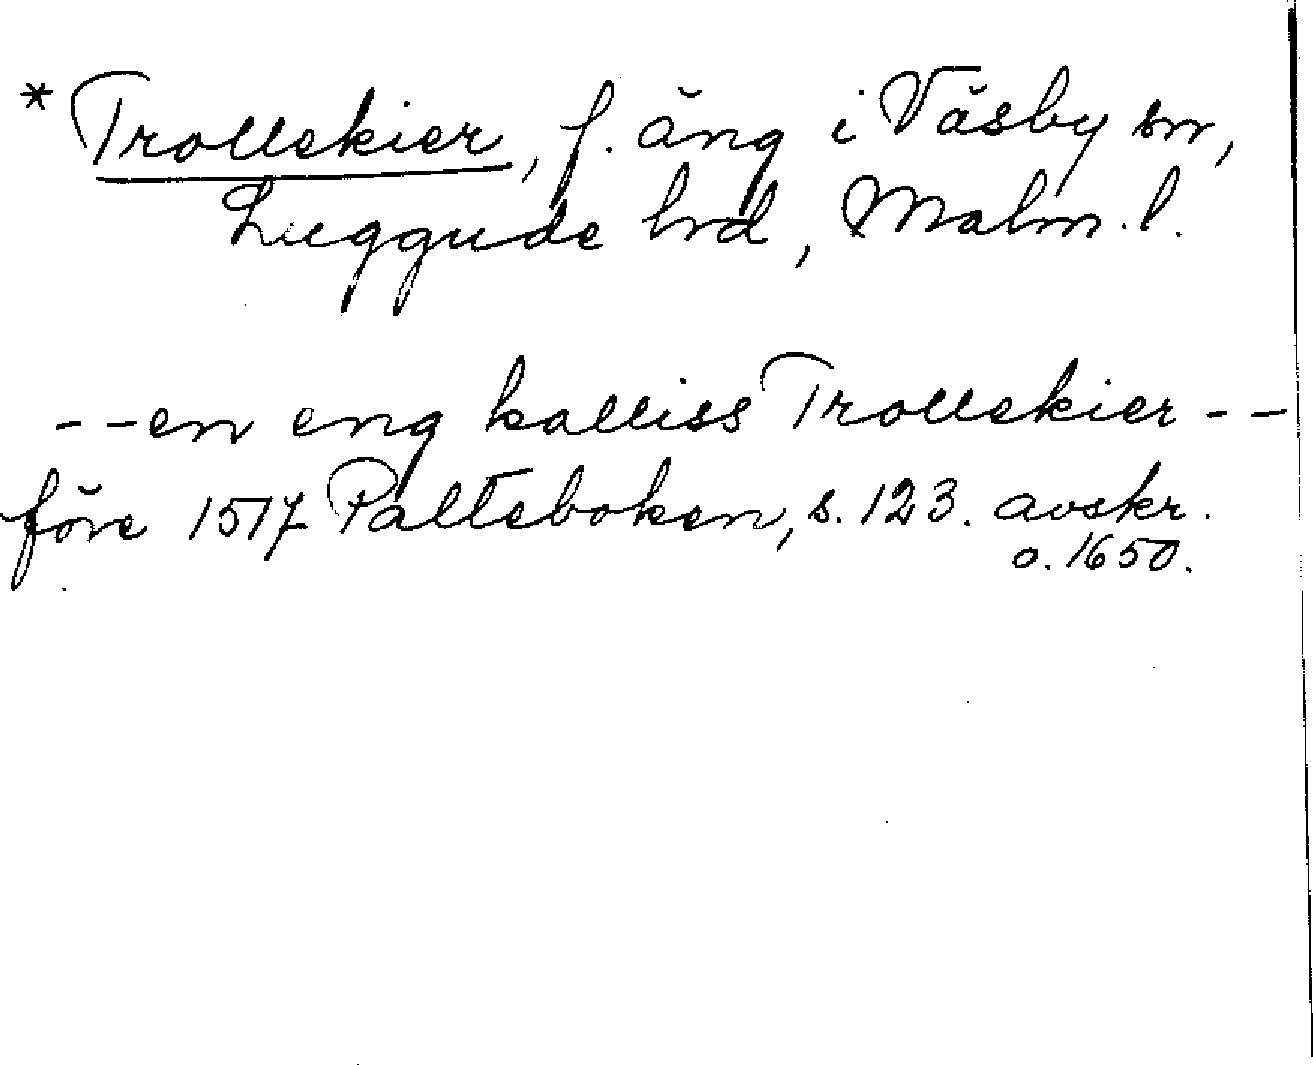 * Trollekier, f. äng i Väsby sn,
Luggude hd, Malm. l.
- - en eng kalliss Trollekier - -
före 1517 Palteboken, s. 123. avskr.
o. 1650.